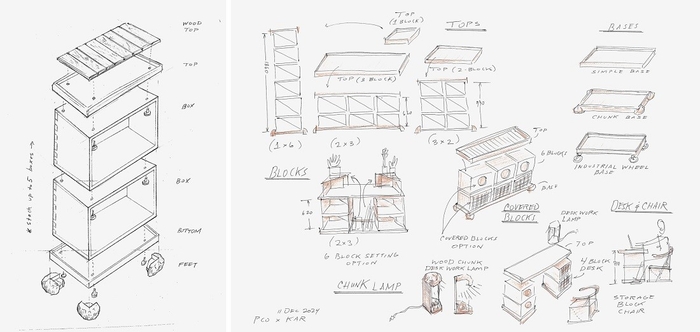 WOOD
TOP
TOP
BOX
BOX
BOTTOM
FEET
* Stack up to 5 boxes →
TOP
(1 BLOCK)
TOPS
BASES
TOP (3 BLOCK)
TOP (2 BLOCKS)
SIMPLE BASE
CHUNK BASE
INDUSTRIAL WHEEL
BASE
(1x6)
(2x3)
(3x2)
BLOCKS
TOP
6 BLOCKS
BASE
COVERED
BLOCKS
COVERED BLOCKS
OPTION
630
(2x3)
6 BLOCK SETTING
OPTION
DESK WORK
LAMP
DESK & CHAIR
TOP
4 BLOCK
DESK
STORAGE
BLOCK
CHAIR
WOOD CHUNK
DESK WORK LAMP
CHUNK LAMP
11 DEC 2024
PCO x KAR